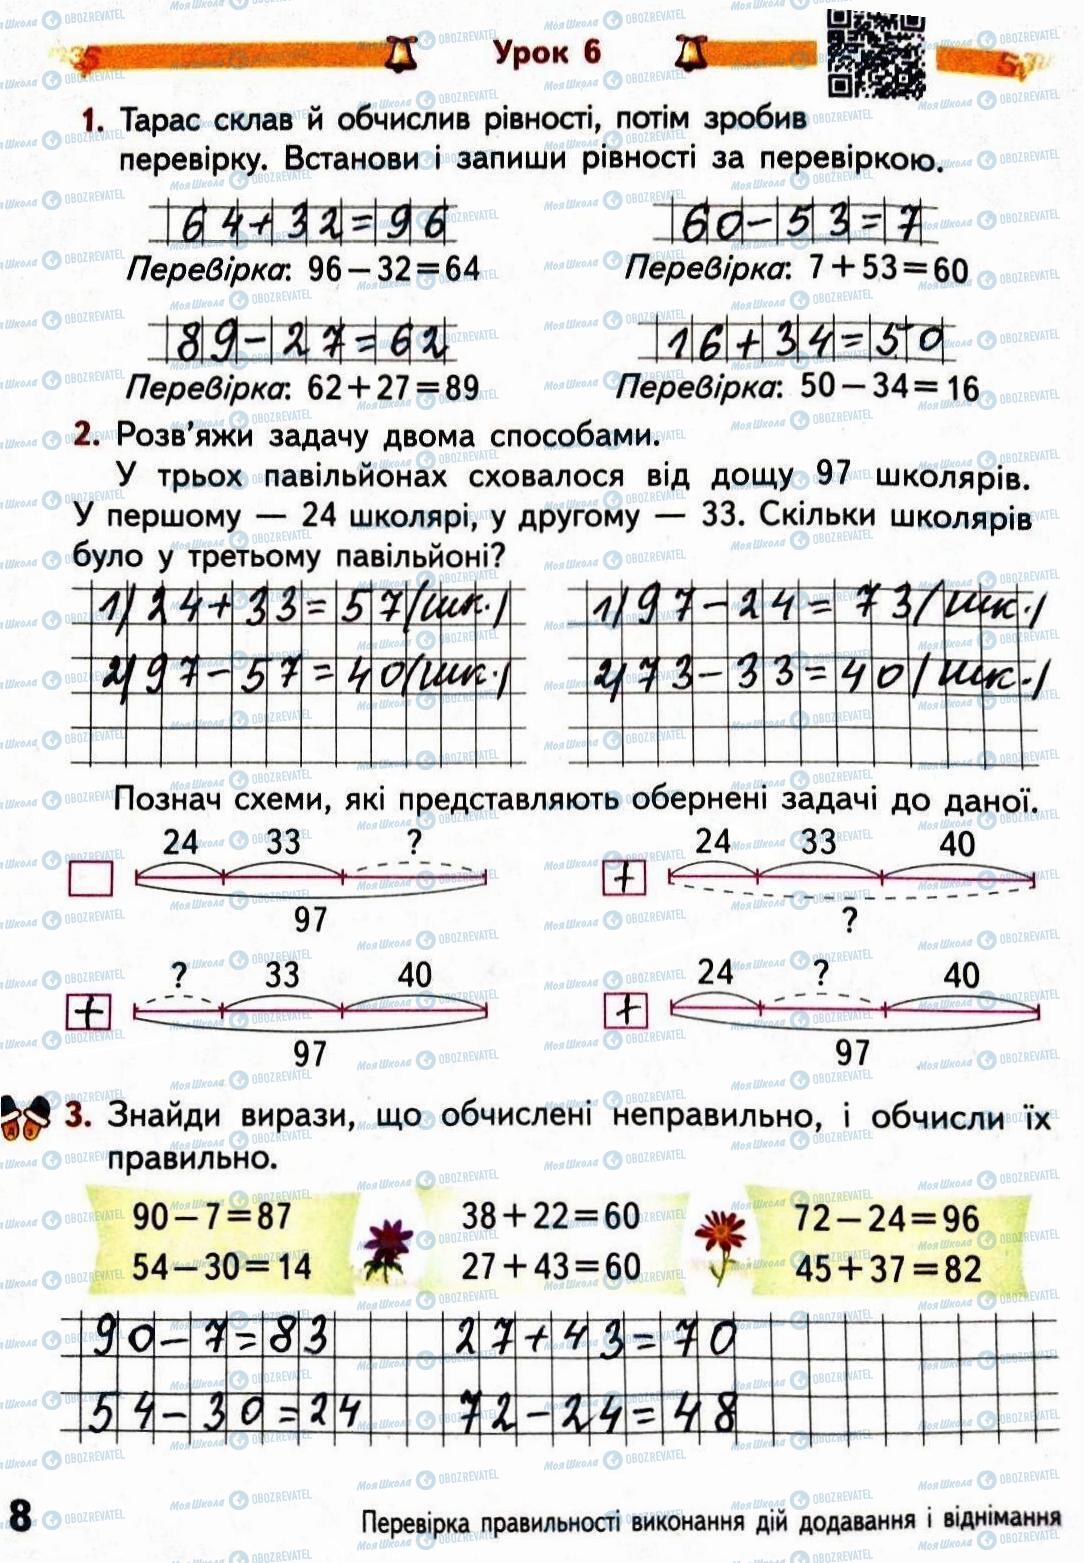 Урок 6
1. Тарас склав й обчислив рівності, потім зробив
перевірку. Встанови і запиши рівності за перевіркою.
64+32=96
60-53=7
Перевірка: 96-32=64
Перевірка: 7+53=60
89-27=62
16+34=50
Перевірка: 62+27=89
Перевірка: 50-34=16
2. Розв'яжи задачу двома способами.
У трьох павільйонах сховалося від дощу 97 школярів.
У першому — 24 школярі, у другому — 33. Скільки школярів
було у третьому павільйоні?
1) 24+33=57(шк.)
1) 97-24=73(шк.)
2) 97-57=40(шк.)
2) 73-33=40(шк.)
Познач схеми, які представляють обернені задачі до даної.
24 33 ?
97
24 33 40
+
?
? 33 40
+
97
24 ? 40
+
97
3. Знайди вирази, що обчислені неправильно, і обчисли їх
правильно.
90-7=87
54-30=14
38+22=60
27+43=60
72-24=96
45+37=82
90-7=83
27+43=70
54-30=24
72-24=48
8
Перевірка правильності виконання дій додавання і віднімання
МояШкола OBOZREVATEL